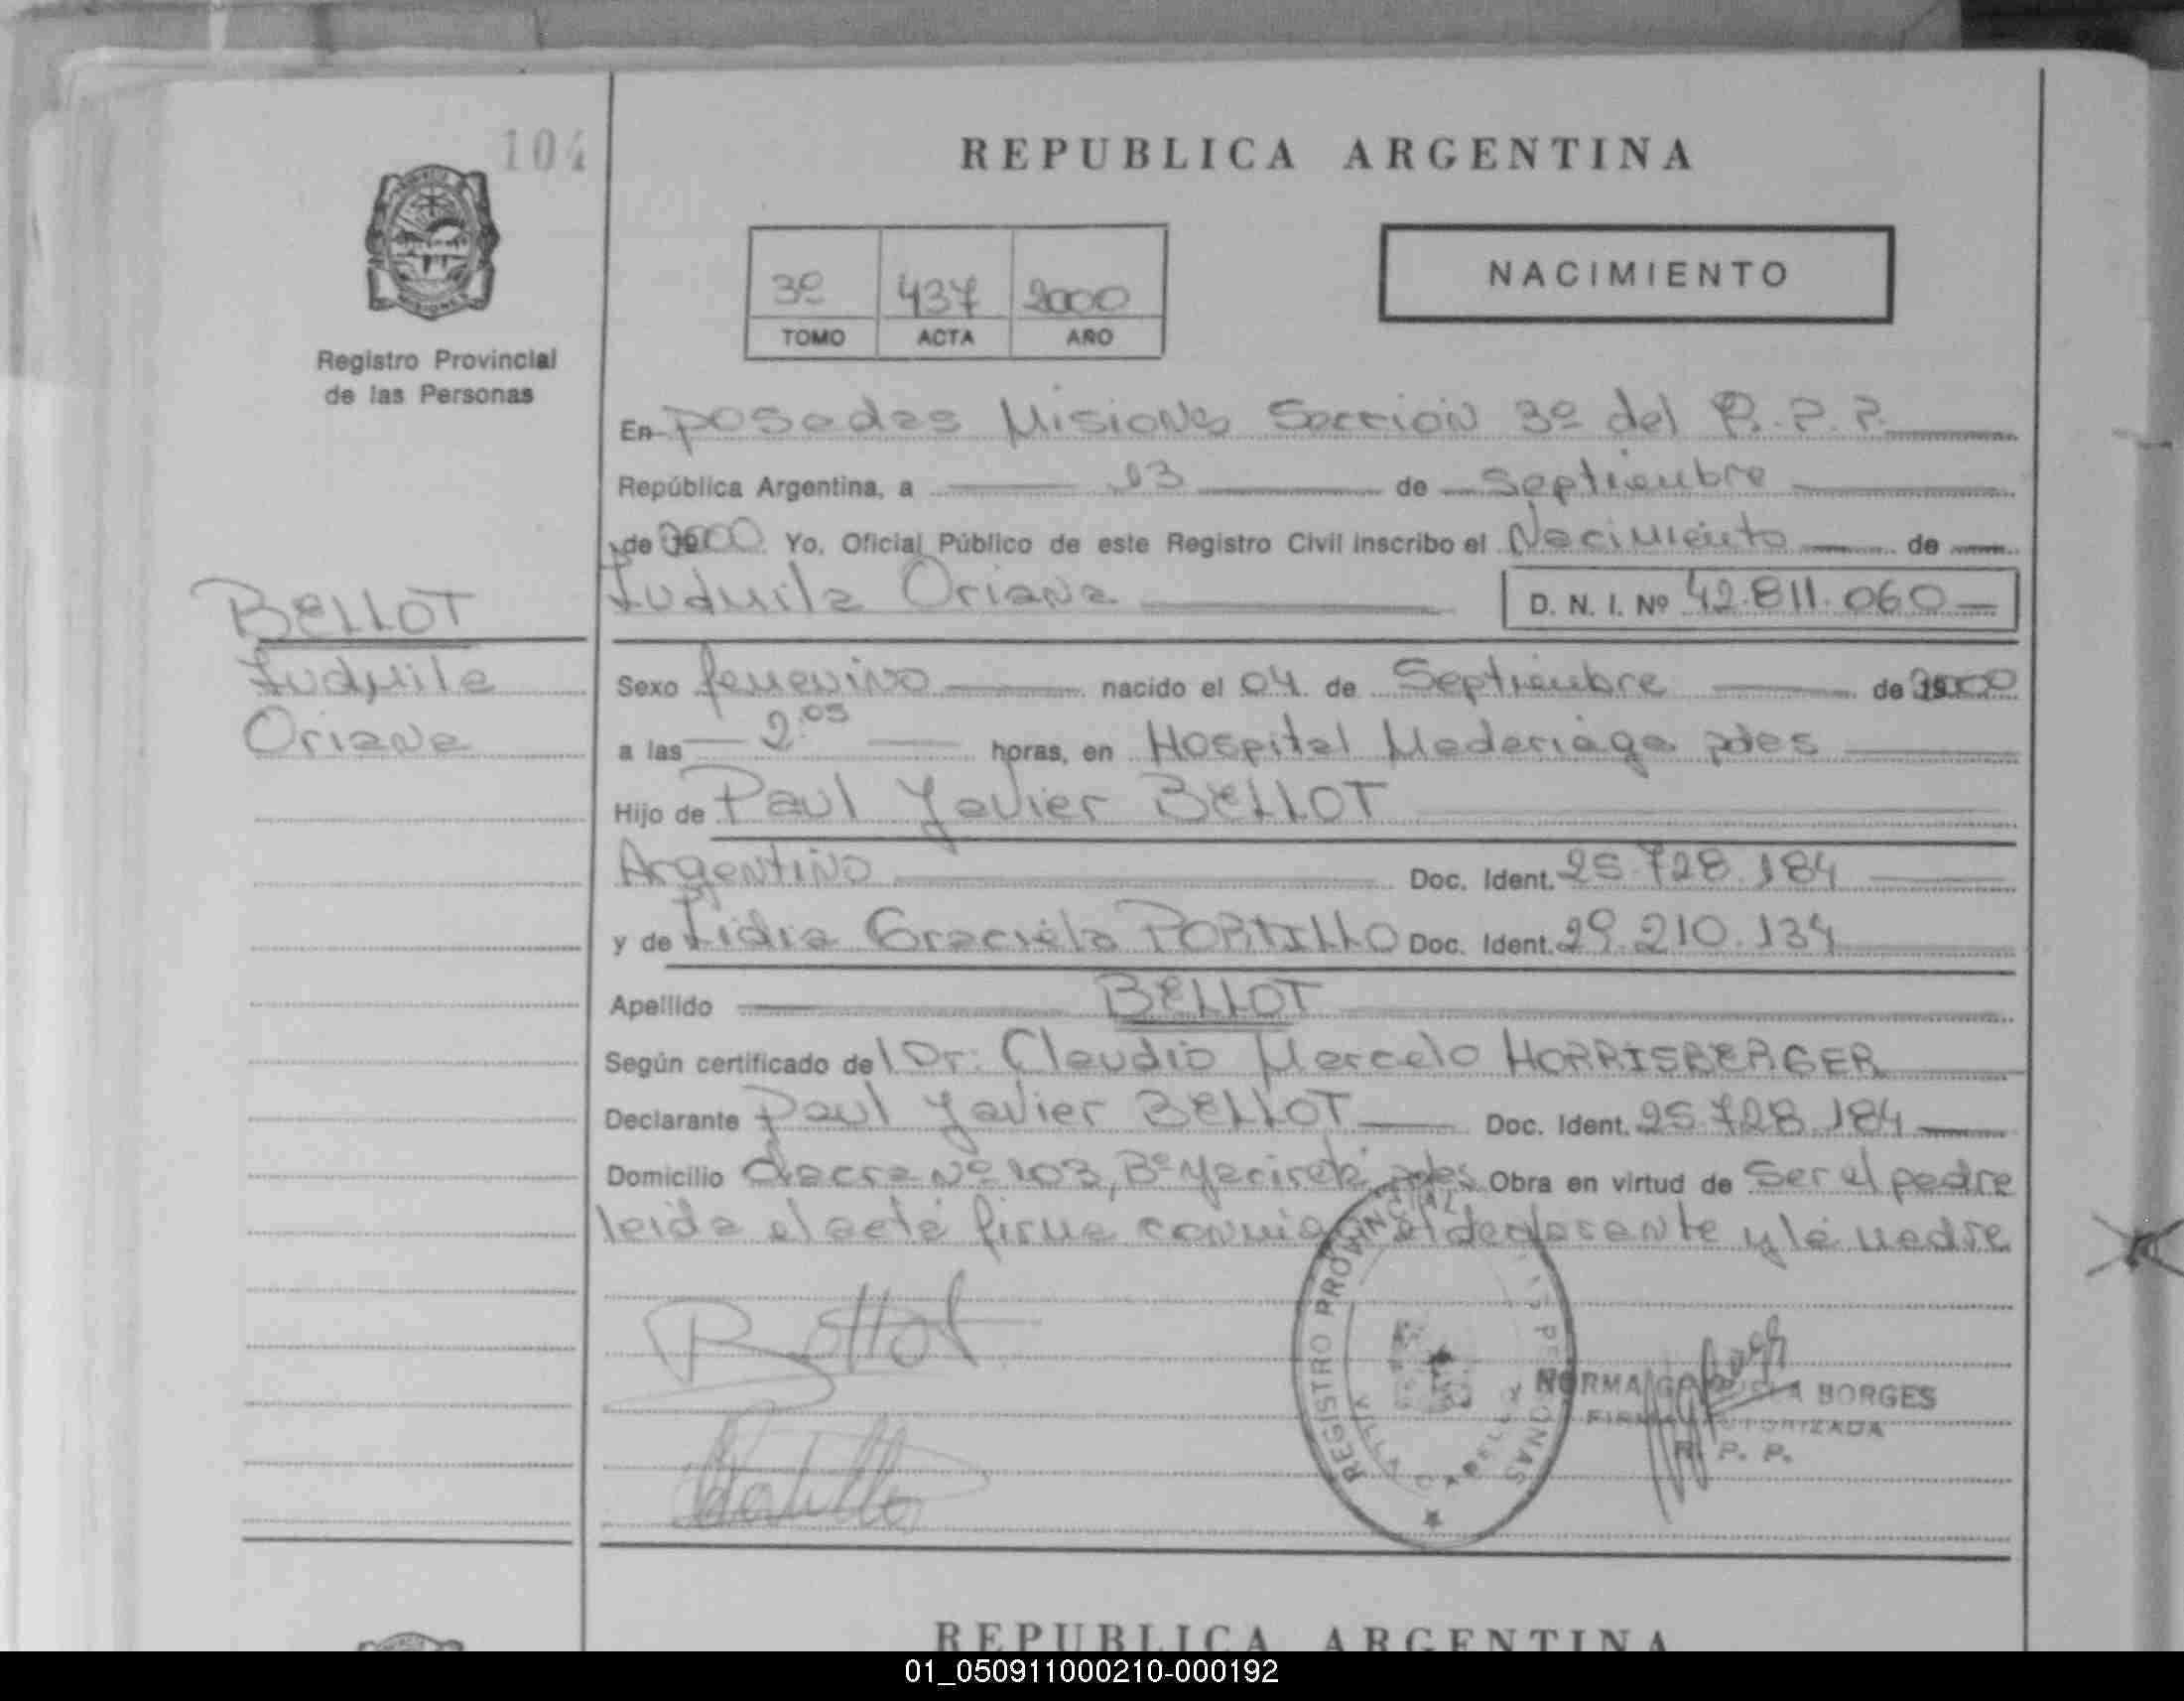 104
REPUBLICA ARGENTINA
3º 437 2000
TOMO ACTA AÑO
NACIMIENTO
Registro Provincial
de las Personas
En posadas Misiones Sección 3º del R.P.P.
República Argentina, a 13 de Septiembre
de 2000 Yo, Oficial Público de este Registro Civil inscribo el Nacimiento de
Ludmila Oriana D. N. I. Nº 42.811.060
BELLOT
Ludmila
Oriana
Sexo femenino nacido el 04 de Septiembre de 2000
a las 2.05 horas, en Hospital Madariaga pdas
Hijo de Paul Javier BELLOT
Argentino Doc. Ident. 25.728.184
y de Lidia Graciela PORTILLO Doc. Ident. 29.210.134
Apellido BELLOT
Según certificado del Dr. Claudio Marcelo HORRISBERGER
Declarante Paul Javier BELLOT Doc. Ident. 25.728.184
Domicilio chacra Nº 103, Bº Yacireta pdas Obra en virtud de Ser el padre
leida el acta firma conmigo el declarante y la madre
Bellot
Portillo
REGISTRO PROVINCIAL PERSONAS
VILLA CABELLO
NORMA BORGES
FIRMA AUTORIZADA
R. P. P.
REPUBLICA ARGENTINA
01_050911000210-000192